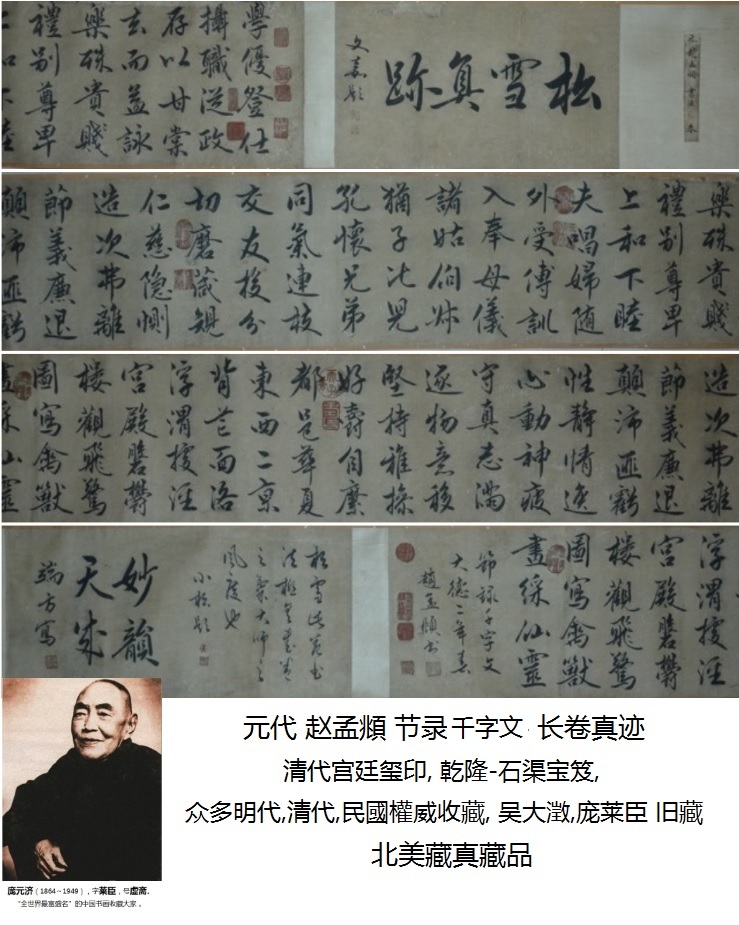 松雪真跡
文嘉題
學優登仕
攝職從政
存以甘棠
去而益詠
樂殊貴賤
禮别尊卑
樂殊貴賤
禮别尊卑
上和下睦
夫唱婦随
外受傅訓
入奉母儀
諸姑伯叔
猶子比兒
孔懷兄弟
同氣連枝
交友投分
切磨箴規
仁慈隐惻
造次弗離
節義廉退
顛沛匪虧
造次弗離
節義廉退
顛沛匪虧
性静情逸
心動神疲
守真志滿
逐物意移
堅持雅操
好爵自縻
都邑華夏
東西二京
背芒面洛
浮渭據涇
宮殿磐鬱
樓觀飛驚
圖寫禽獸
畫綵仙靈
浮渭據涇
宮殿磐鬱
樓觀飛驚
圖寫禽獸
畫綵仙靈
節録千字文
大德二年春
趙孟頫書
松雪此卷書
法極
之氣大師之
風度也
小松題
妙韻
天成
端方寫
元代 赵孟頫 节录千字文 长卷真迹
清代宫廷玺印, 乾隆-石渠宝笈,
众多明代,清代,民國權威收藏, 吴大澂,庞莱臣 旧藏
北美藏真藏品
庞元济（1864～1949），字莱臣，号虚斋.
"全世界最富盛名"的中国书画收藏大家 。